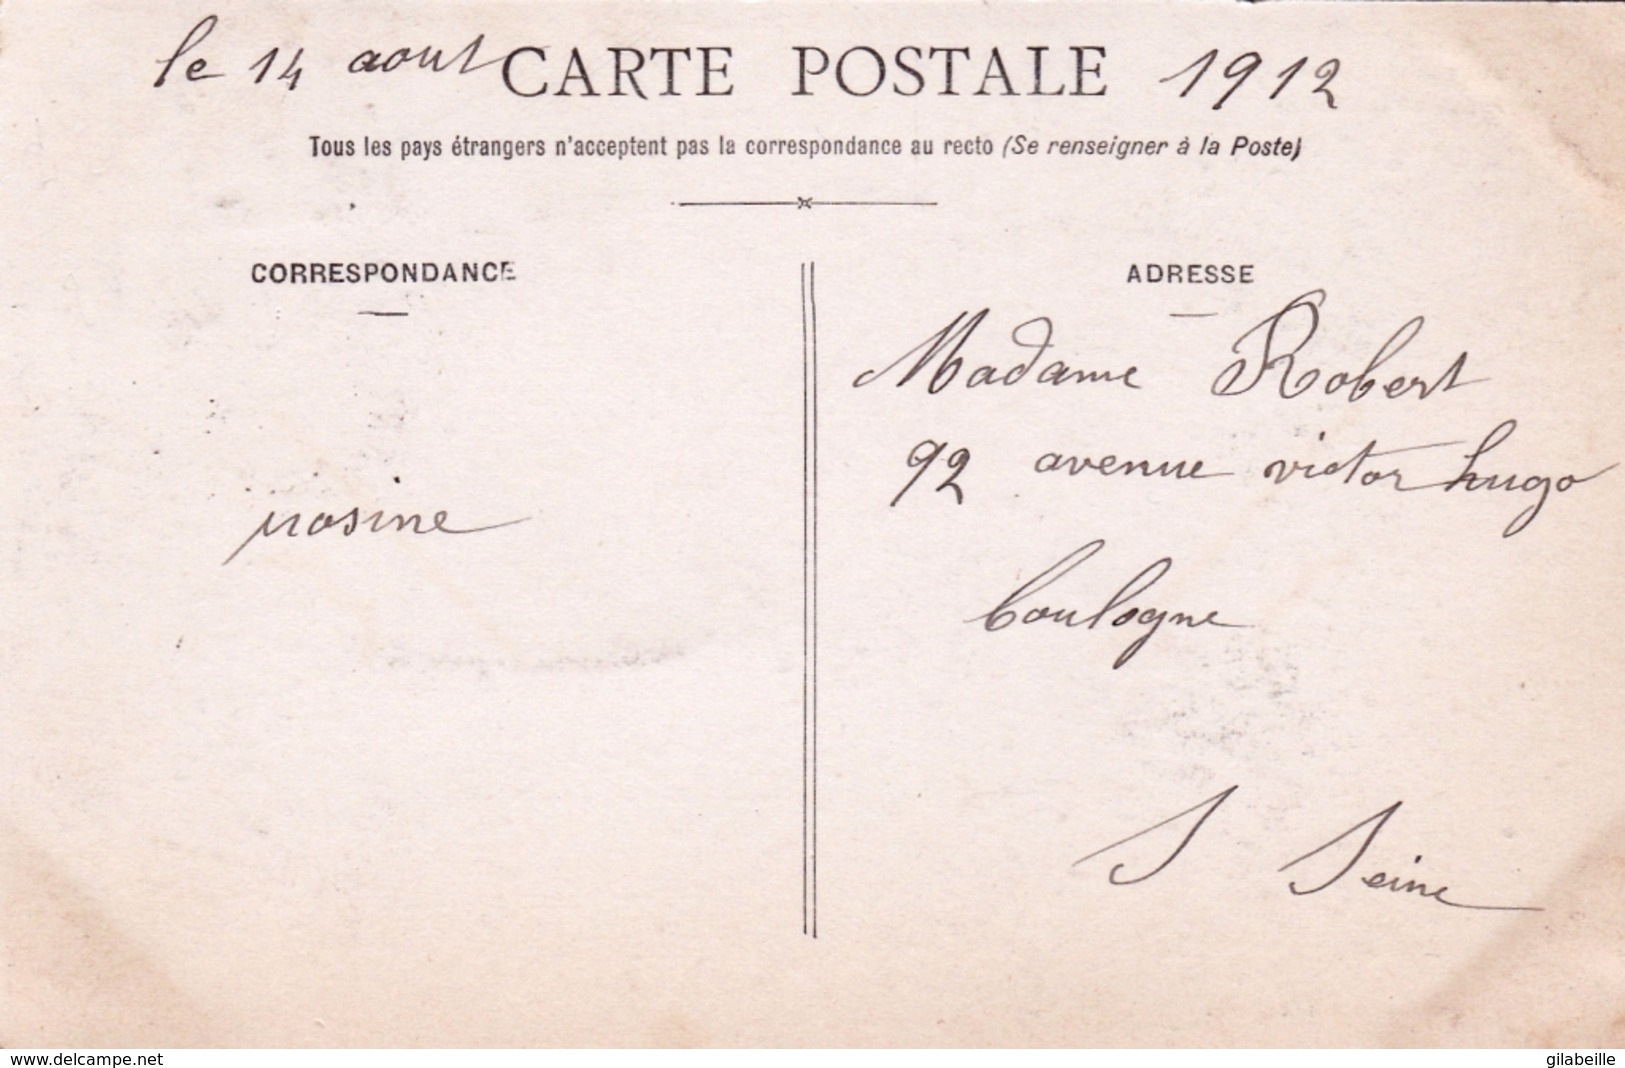 le 14 aout CARTE POSTALE 1912
Tous les pays étrangers n'acceptent pas la correspondance au recto (Se renseigner à la Poste)
CORRESPONDANCE
rosine
ADRESSE
Madame Robert
92 avenue victor hugo
boulogne
S Seine
www.delcampe.net
gilabeille